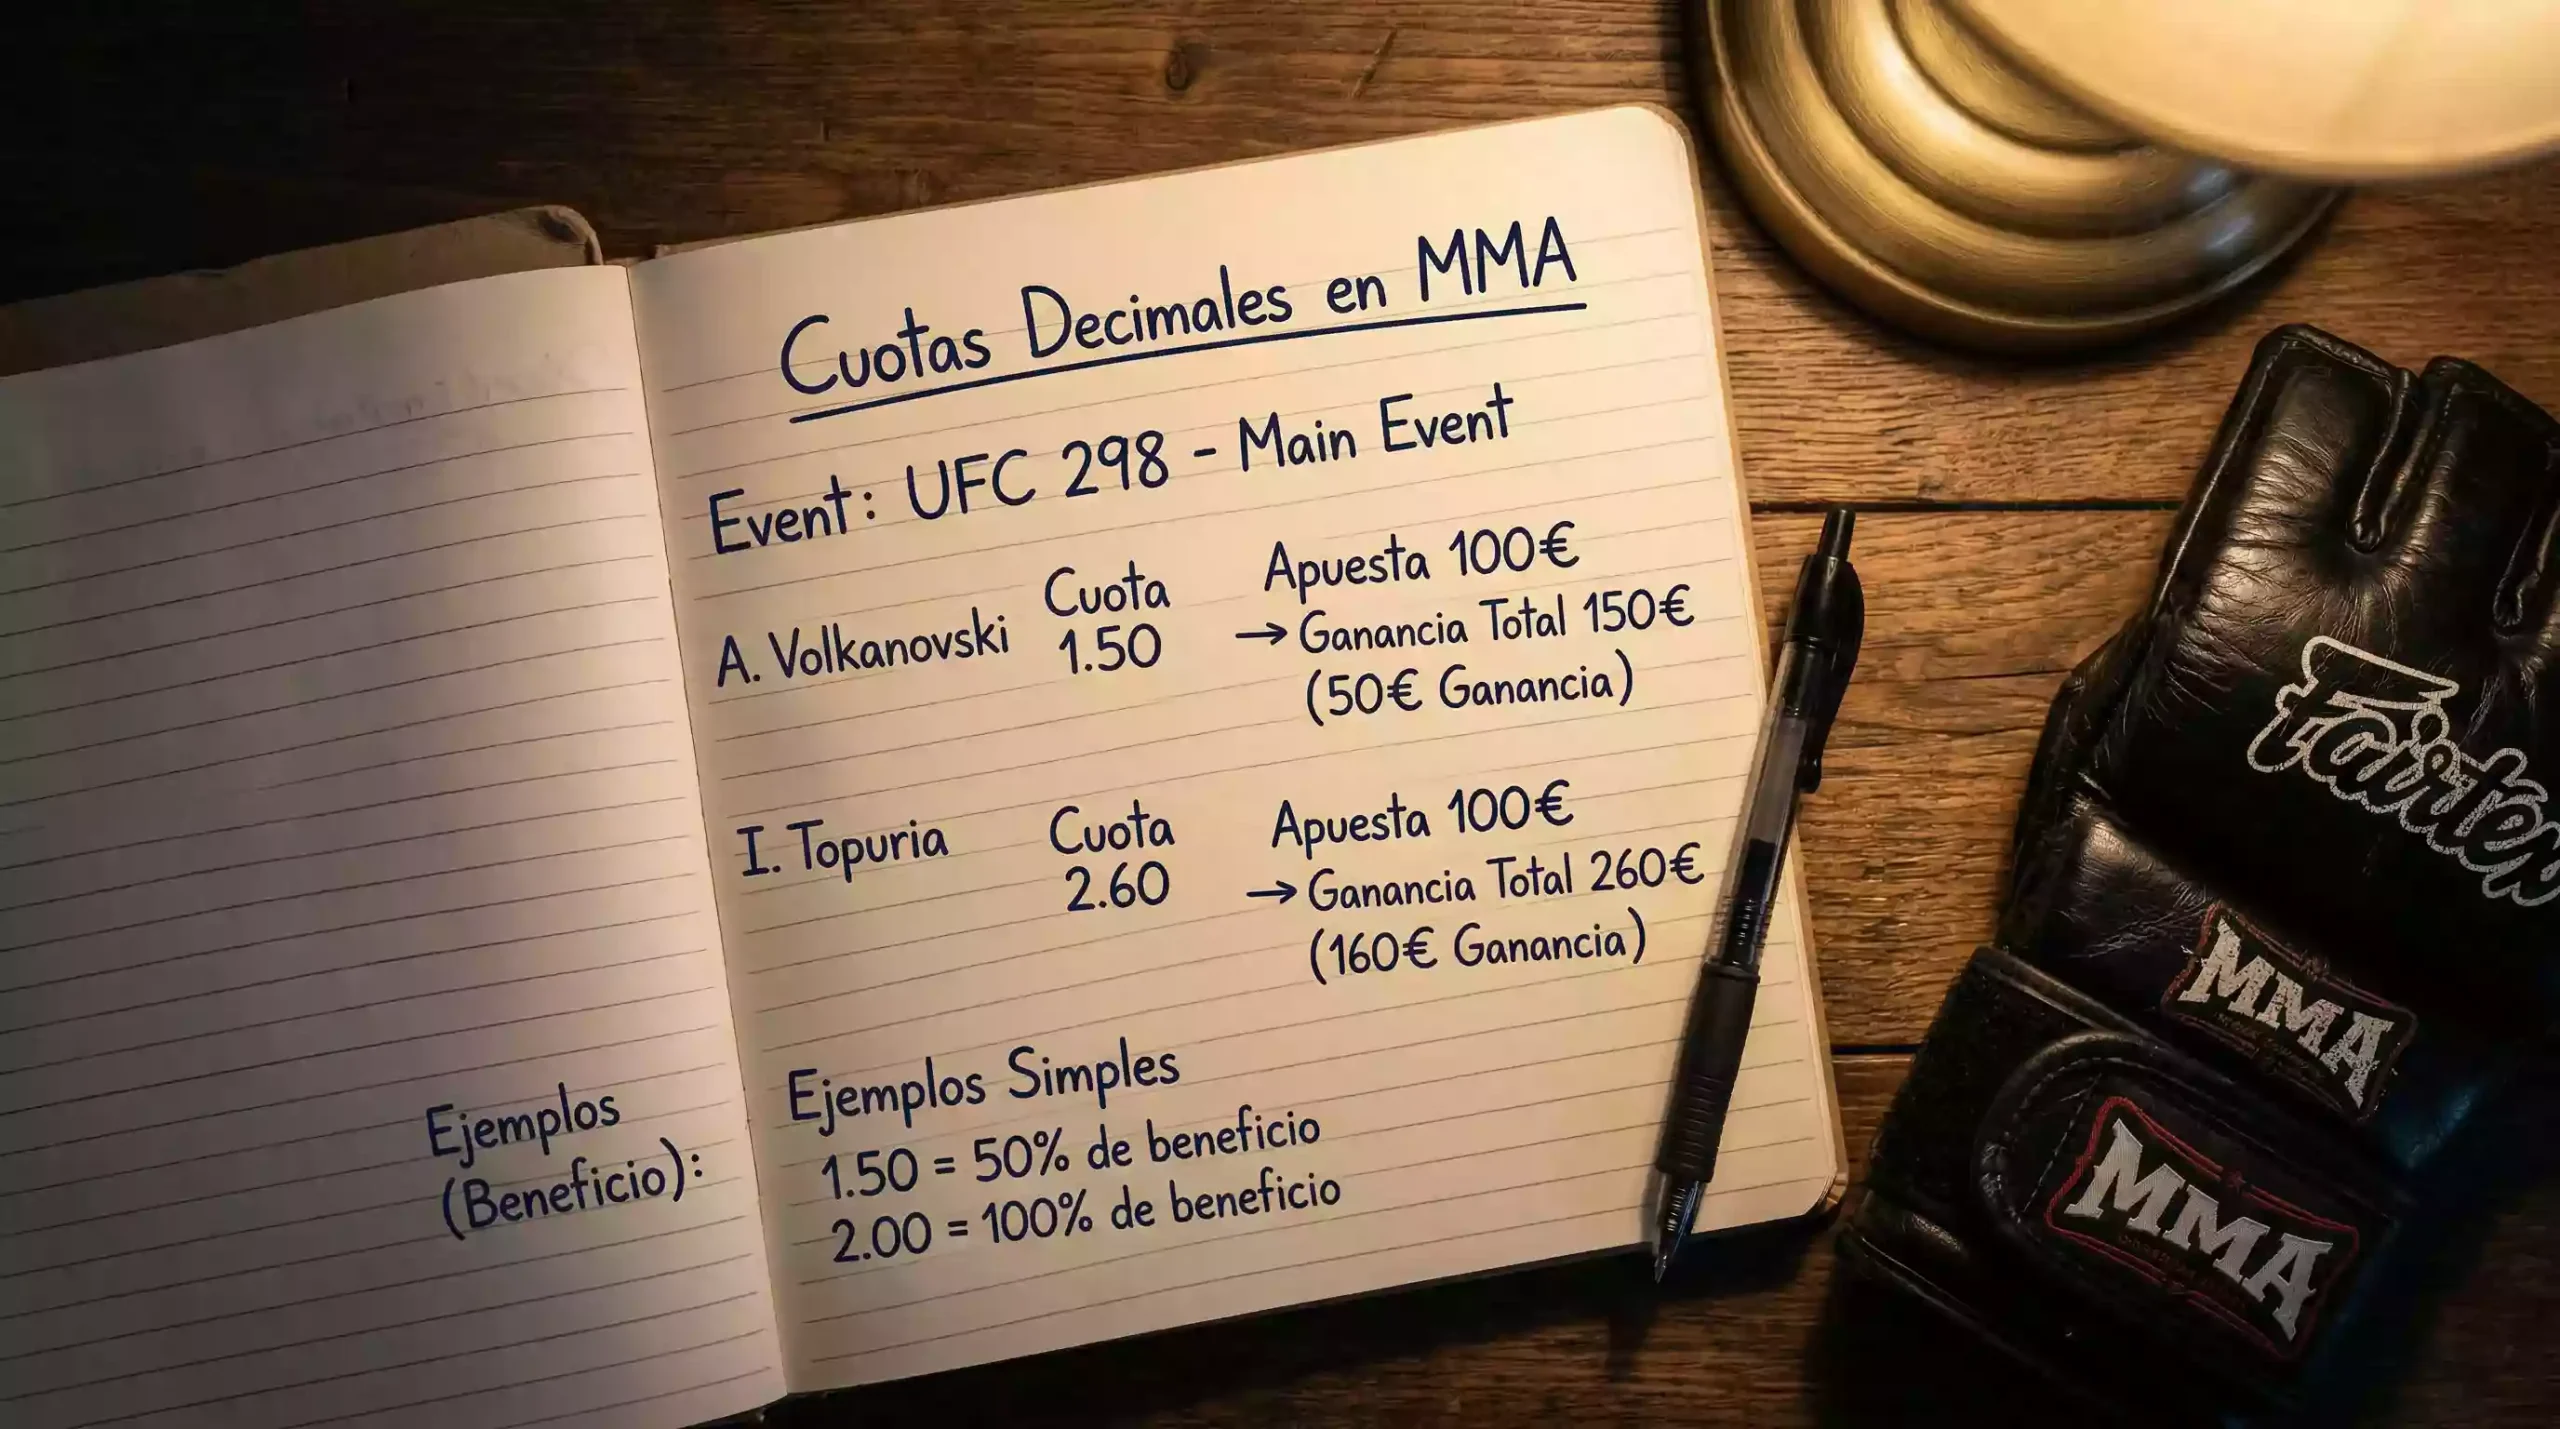 Cuotas Decimales en MMA
Event: UFC 298 - Main Event
A. Volkanovski
Cuota
1.50
Apuesta 100€
→ Ganancia Total 150€
(50€ Ganancia)
I. Topuria
Cuota
2.60
Apuesta 100€
→ Ganancia Total 260€
(160€ Ganancia)
Ejemplos
(Beneficio):
Ejemplos Simples
1.50 = 50% de beneficio
2.00 = 100% de beneficio
Fairtex
MMA
MMA